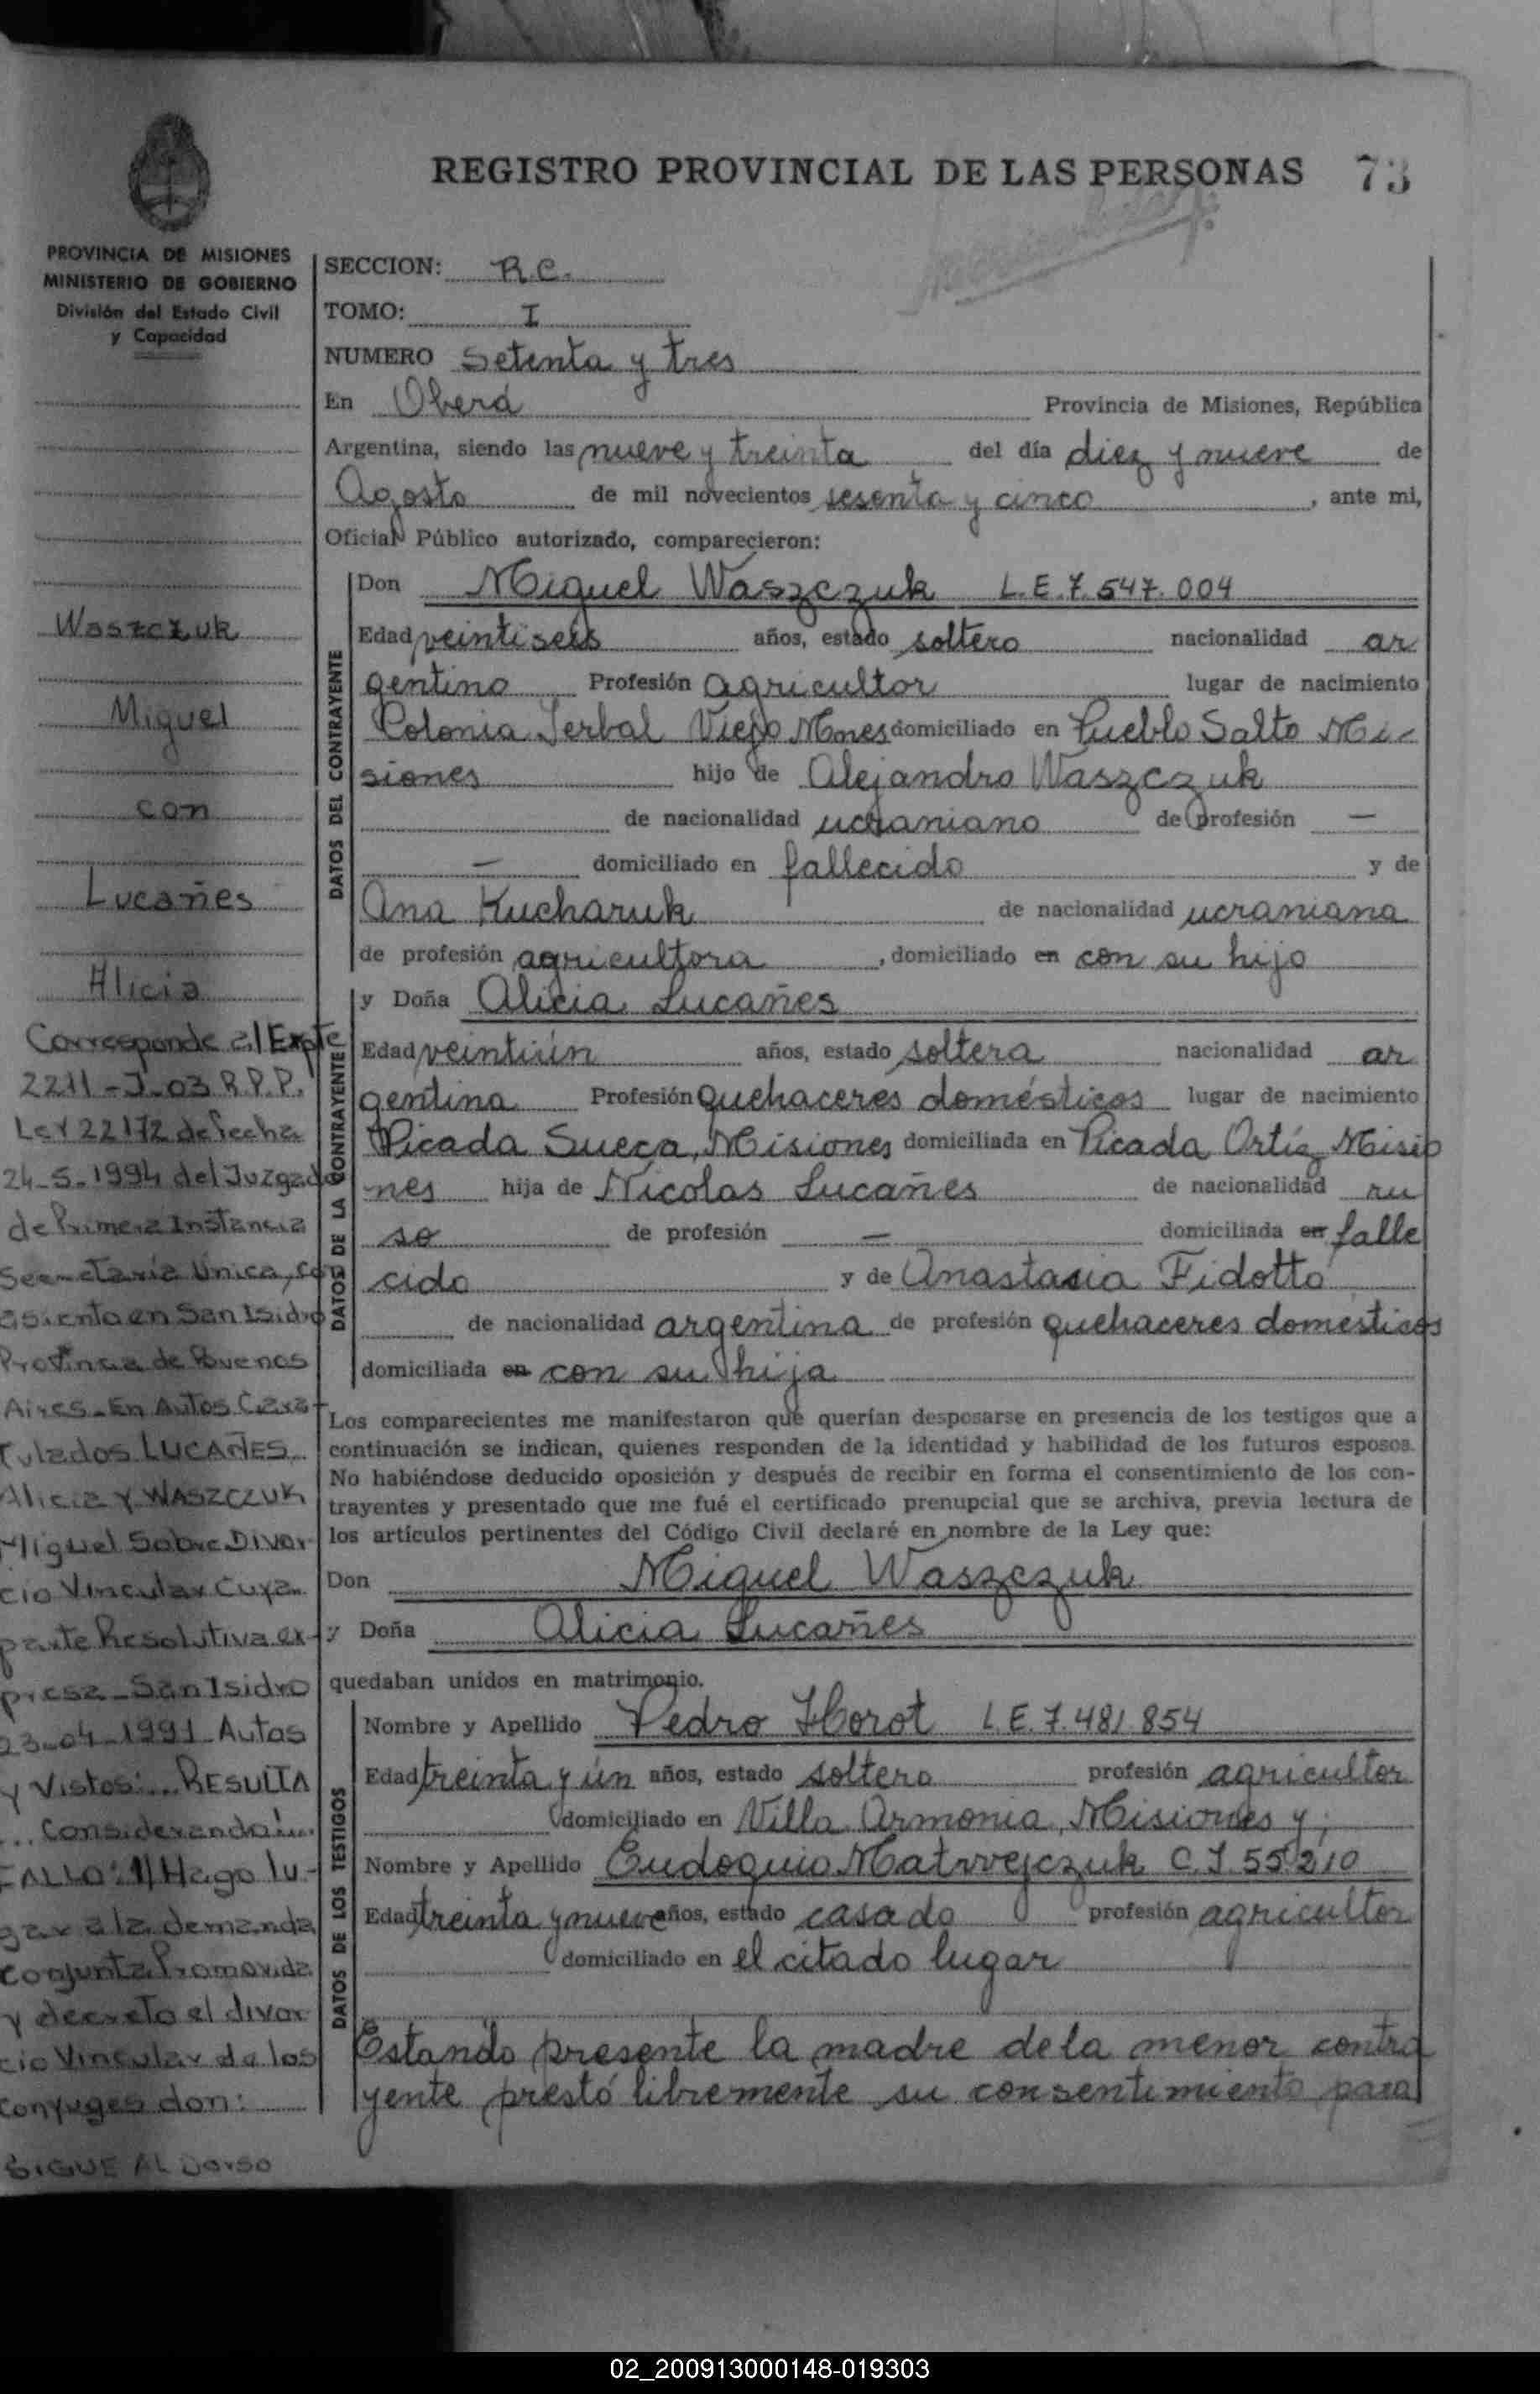 REGISTRO PROVINCIAL DE LAS PERSONAS 73
PROVINCIA DE MISIONES
MINISTERIO DE GOBIERNO
División del Estado Civil
y Capacidad
Waszczuk
Miguel
con
Lucañes
Alicia
Corresponde al Expte
2211-J-03 R.P.P.
Ley 22172 de fecha
24-5-1994 del Juzgado
de Primera Instancia
Secretaría Única, con
asiento en San Isidro
Provincia de Buenos
Aires-En Autos Cara-
tulados LUCAÑES
Alicia y WASZCZUK
Miguel Sobre Divor-
cio Vincular Cuya
parte Resolutiva ex-
presa-San Isidro
23-04-1991-Autos
y Vistos:...RESULTA
...Considerando:...
FALLO: 1) Hago lu-
gar a la demanda
conjunta Promovida
y decreto el divor
cio Vincular de los
conyuges don:
SIGUE AL Dorso
SECCION: R.C.
TOMO: I
NUMERO Setenta y tres
En Oberá Provincia de Misiones, República
Argentina, siendo las nueve y treinta del día diez y nueve de
Agosto de mil novecientos sesenta y cinco, ante mi,
Oficial Público autorizado, comparecieron:
DATOS DEL CONTRAYENTE
Don Miguel Waszczuk L.E.7.547.004
Edad veintiseis años, estado soltero nacionalidad ar
gentino Profesión agricultor lugar de nacimiento
Colonia Yerbal Viejo Mnes domiciliado en Pueblo Salto Mi-
siones hijo de Alejandro Waszczuk
de nacionalidad ucraniano de profesión —
— domiciliado en fallecido y de
Ana Kucharuk de nacionalidad ucraniana
de profesión agricultora, domiciliado en con su hijo
DATOS DE LA CONTRAYENTE
y Doña Alicia Lucañes
Edad veintiún años, estado soltera nacionalidad ar
gentina Profesión quehaceres domésticos lugar de nacimiento
Picada Sueca, Misiones domiciliada en Picada Ortíz Misio
nes hija de Nicolas Lucañes de nacionalidad ru
so de profesión — domiciliada en falle
cido y de Anastasia Fidotto
de nacionalidad argentina de profesión quehaceres domesticos
domiciliada en con su hija
Los comparecientes me manifestaron que querían desposarse en presencia de los testigos que a
continuación se indican, quienes responden de la identidad y habilidad de los futuros esposos.
No habiéndose deducido oposición y después de recibir en forma el consentimiento de los con-
trayentes y presentado que me fué el certificado prenupcial que se archiva, previa lectura de
los artículos pertinentes del Código Civil declaré en nombre de la Ley que:
Don Miguel Waszczuk
y Doña Alicia Lucañes
quedaban unidos en matrimonio.
DATOS DE LOS TESTIGOS
Nombre y Apellido Pedro Horot L.E.7.481.854
Edad treinta y ún años, estado soltero profesión agricultor
domiciliado en Villa Armonia, Misiones y;
Nombre y Apellido Eudoquio Matwejczuk C.I.55.210
Edad treinta y nueve años, estado casado profesión agricultor
domiciliado en el citado lugar
Estando presente la madre de la menor contra
yente prestó libremente su consentimiento para
02_200913000148-019303